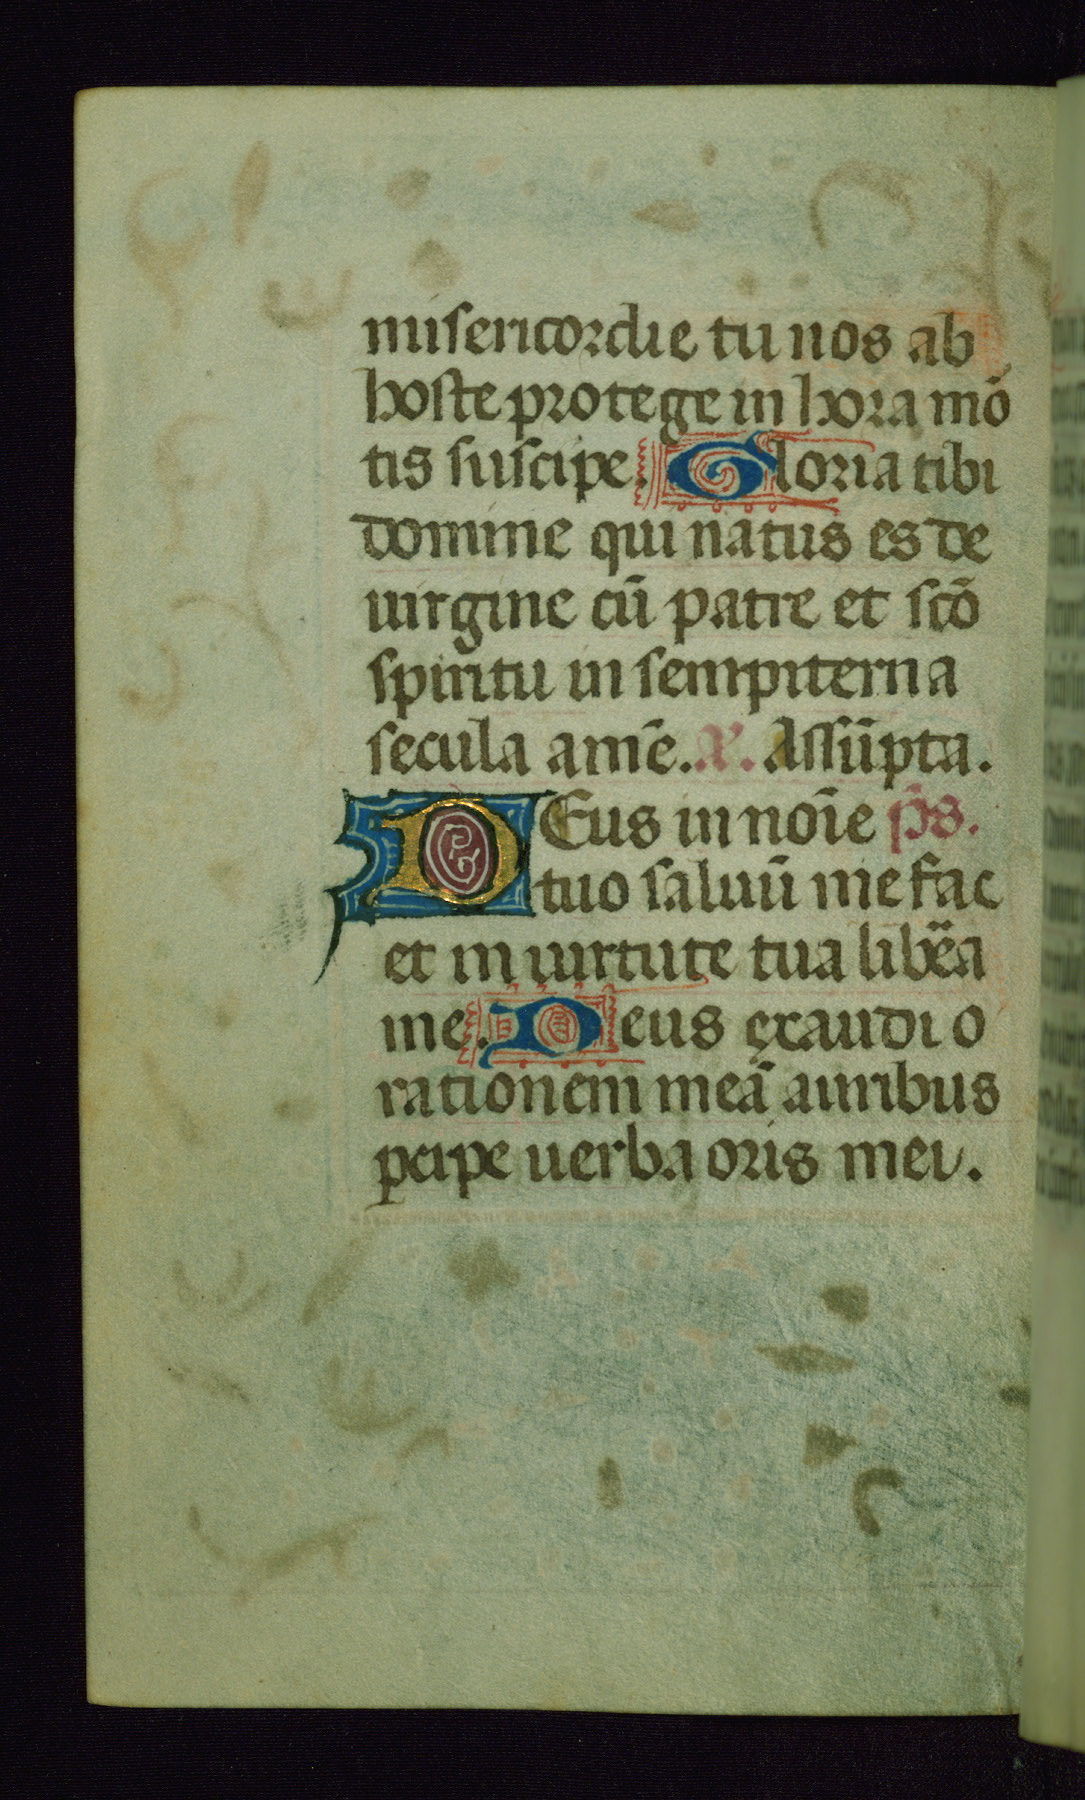 misericordie tu nos ab
hoste protege in hora mō
tis suscipe. Gloria tibi
domine qui natus es de
uirgine cū patre et scō
spiritu in sempiterna
secula amē. a͞. Assūpta.
DEus in noīe p̄s.
tuo saluū me fac
et in uirtute tua libēa
me. Deus exaudi o
rationem meā auribus
ꝑcipe uerba oris mei.